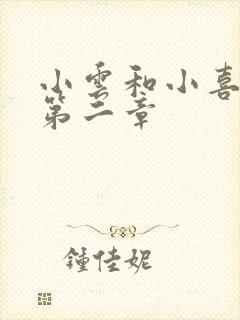 小雲和小喜
第二章
鍾佳妮